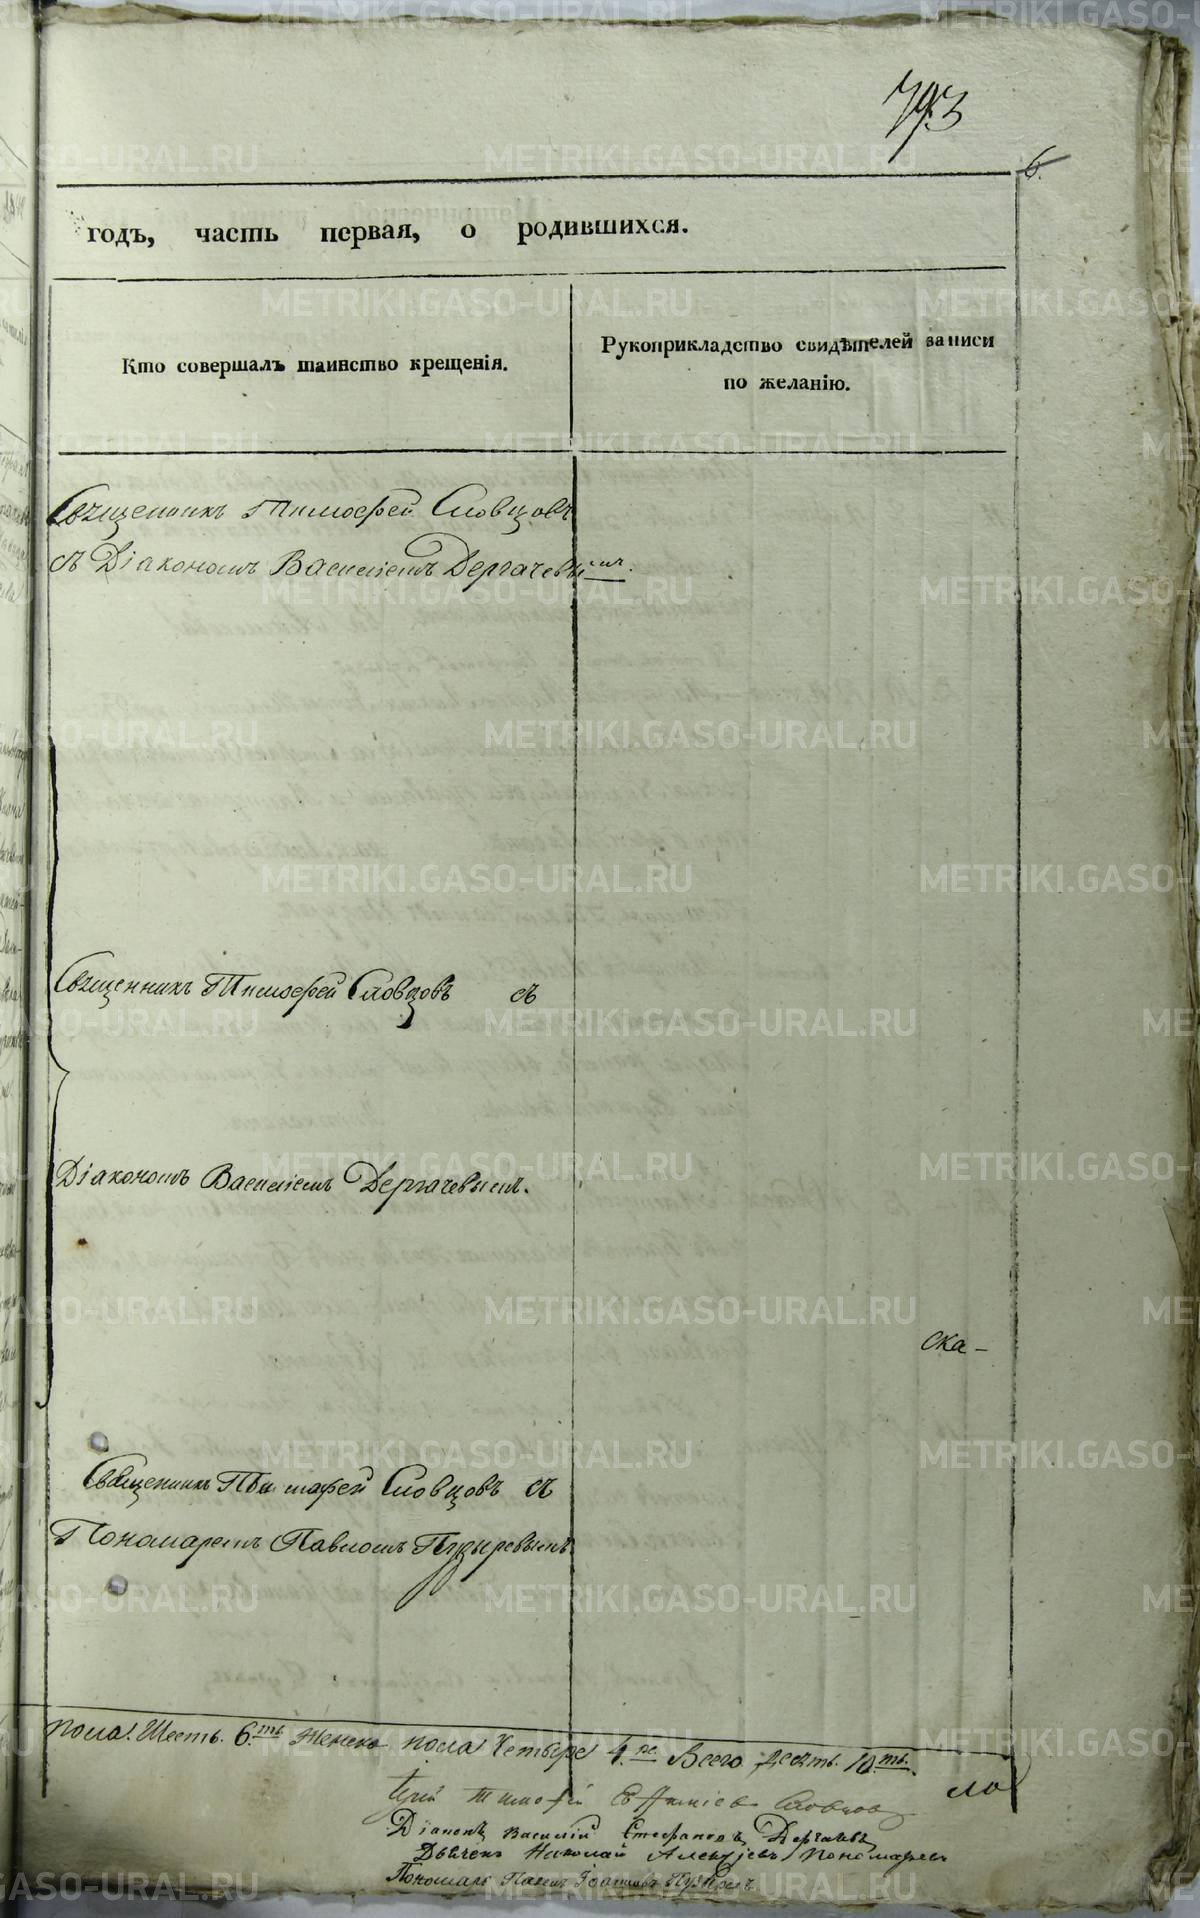 793
6.
годъ, часть первая, о родившихся.
Кто совершалъ таинство крещенія.
Рукоприкладство свидѣтелей записи
по желанію.
Священникъ Тимоѳей Словцовъ
съ Діакономъ Василіемъ Дергачевымъ.
Священникъ Тимоѳей Словцовъ съ
Діакономъ Василіемъ Дергачевымъ.
ска-
Священникъ Тимоѳей Словцовъ съ
Пономаремъ Павломъ Пузыревымъ
пола: Шесть. 6.ть Женска пола Четыре 4.ре Всего десять. 10.ть.
сло
Іерей Тимоѳей Евѳиміевъ Словцовъ
Діаконъ Василій Стефановъ Дергачевъ
Дьячекъ Николай Алексѣевъ Пономаревъ
Пономарь Павелъ Іоанновъ Пузыревъ
METRIKI.GASO-URAL.RU